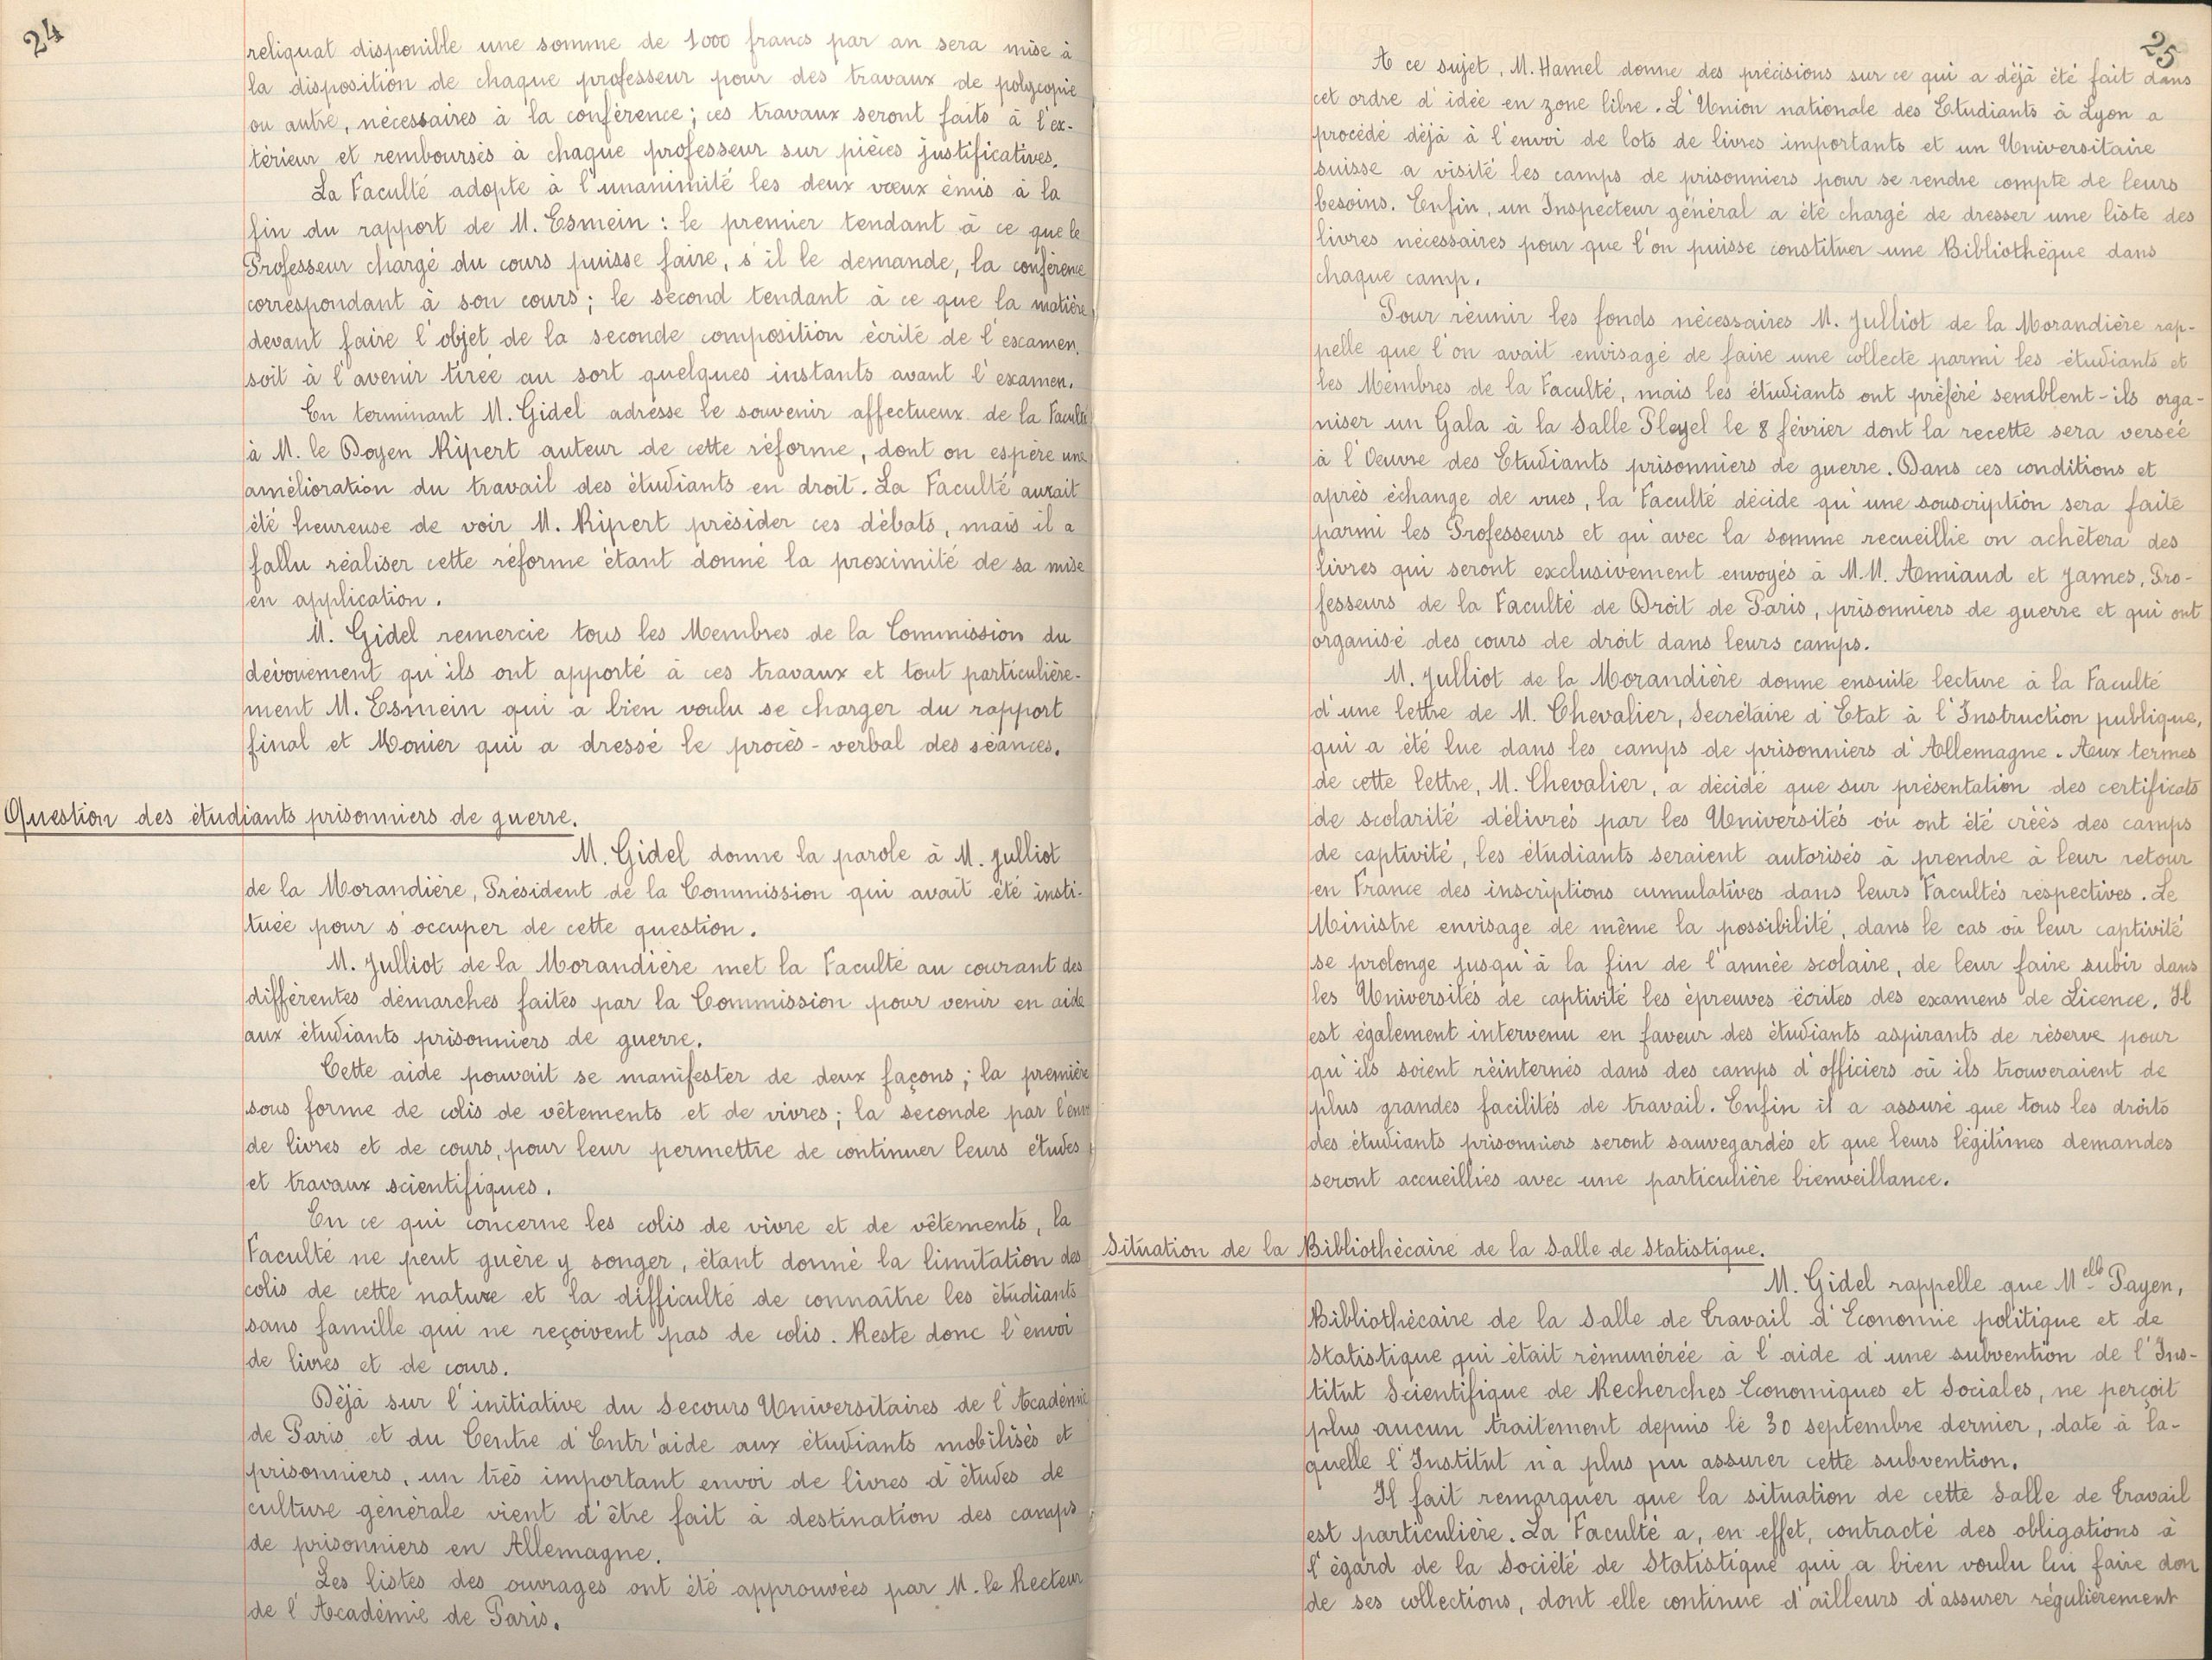 24
reliquat disponible une somme de 1000 francs par an sera mise à
la disposition de chaque professeur pour des travaux de polycopie
ou autre, nécessaires à la conférence ; ces travaux seront faits à l'ex-
térieur et remboursés à chaque professeur sur pièces justificatives.
La Faculté adopte à l'unanimité les deux vœux émis à la
fin du rapport de M. Esmein : le premier tendant à ce que le
Professeur chargé du cours puisse faire, s'il le demande, la conférence
correspondant à son cours ; le second tendant à ce que la matière
devant faire l'objet de la seconde composition écrite de l'examen,
soit à l'avenir tirée au sort quelques instants avant l'examen.
En terminant M. Gidel adresse le souvenir affectueux de la Faculté
à M. le Doyen Ripert auteur de cette réforme, dont on espère une
amélioration du travail des étudiants en droit. La Faculté aurait
été heureuse de voir M. Ripert présider ces débats, mais il a
fallu réaliser cette réforme étant donné la proximité de sa mise
en application.
M. Gidel remercie tous les Membres de la Commission du
dévouement qu'ils ont apporté à ces travaux et tout particulière-
ment M. Esmein qui a bien voulu se charger du rapport
final et Monier qui a dressé le procès-verbal des séances.
Question des étudiants prisonniers de guerre.
M. Gidel donne la parole à M. Julliot
de la Morandière, Président de la Commission qui avait été insti-
tuée pour s'occuper de cette question.
M. Julliot de la Morandière met la Faculté au courant des
différentes démarches faites par la Commission pour venir en aide
aux étudiants prisonniers de guerre.
Cette aide pouvait se manifester de deux façons ; la première
sous forme de colis de vêtements et de vivres ; la seconde par l'envoi
de livres et de cours, pour leur permettre de continuer leurs études
et travaux scientifiques.
En ce qui concerne les colis de vivre et de vêtements, la
Faculté ne peut guère y songer, étant donné la limitation des
colis de cette nature et la difficulté de connaître les étudiants
sans famille qui ne reçoivent pas de colis. Reste donc l'envoi
de livres et de cours.
Déjà sur l'initiative du Secours Universitaires de l'Académie
de Paris et du Centre d'Entr'aide aux étudiants mobilisés et
prisonniers, un très important envoi de livres d'études de
culture générale vient d'être fait à destination des camps
de prisonniers en Allemagne.
Les listes des ouvrages ont été approuvées par M. le Recteur
de l'Académie de Paris.
25
A ce sujet, M. Hamel donne des précisions sur ce qui a déjà été fait dans
cet ordre d'idée en zone libre. L'Union nationale des Etudiants à Lyon a
procédé déjà à l'envoi de lots de livres importants et un Universitaire
suisse a visité les camps de prisonniers pour se rendre compte de leurs
besoins. Enfin, un Inspecteur général a été chargé de dresser une liste des
livres nécessaires pour que l'on puisse constituer une Bibliothèque dans
chaque camp.
Pour réunir les fonds nécessaires M. Julliot de la Morandière rap-
pelle que l'on avait envisagé de faire une collecte parmi les étudiants et
les Membres de la Faculté, mais les étudiants ont préféré semblent-ils orga-
niser un Gala à la Salle Pleyel le 8 février dont la recette sera versée
à l'Oeuvre des Etudiants prisonniers de guerre. Dans ces conditions et
après échange de vues, la Faculté décide qu'une souscription sera faite
parmi les Professeurs et qu'avec la somme recueillie on achètera des
livres qui seront exclusivement envoyés à M.M. Amiaud et James, Pro-
fesseurs de la Faculté de Droit de Paris, prisonniers de guerre et qui ont
organisé des cours de droit dans leurs camps.
M. Julliot de la Morandière donne ensuite lecture à la Faculté
d'une lettre de M. Chevalier, Secrétaire d'Etat à l'Instruction publique,
qui a été lue dans les camps de prisonniers d'Allemagne. Aux termes
de cette lettre, M. Chevalier, a décidé que sur présentation des certificats
de scolarité délivrés par les Universités où ont été créés des camps
de captivité, les étudiants seraient autorisés à prendre à leur retour
en France des inscriptions cumulatives dans leurs Facultés respectives. Le
Ministre envisage de même la possibilité, dans le cas où leur captivité
se prolonge jusqu'à la fin de l'année scolaire, de leur faire subir dans
les Universités de captivité les épreuves écrites des examens de Licence. Il
est également intervenu en faveur des étudiants aspirants de réserve pour
qu'ils soient réinternés dans des camps d'officiers où ils trouveraient de
plus grandes facilités de travail. Enfin il a assuré que tous les droits
des étudiants prisonniers seront sauvegardés et que leurs légitimes demandes
seront accueillies avec une particulière bienveillance.
Situation de la Bibliothécaire de la Salle de Statistique.
M. Gidel rappelle que Melle Payen,
Bibliothécaire de la Salle de Travail d'Economie politique et de
Statistique qui était rémunérée à l'aide d'une subvention de l'Ins-
titut Scientifique de Recherches Economiques et Sociales, ne perçoit
plus aucun traitement depuis le 30 septembre dernier, date à la-
quelle l'Institut n'a plus pu assurer cette subvention.
Il fait remarquer que la situation de cette Salle de Travail
est particulière. La Faculté a, en effet, contracté des obligations à
l'égard de la Société de Statistique qui a bien voulu lui faire don
de ses collections, dont elle continue d'ailleurs d'assurer régulièrement